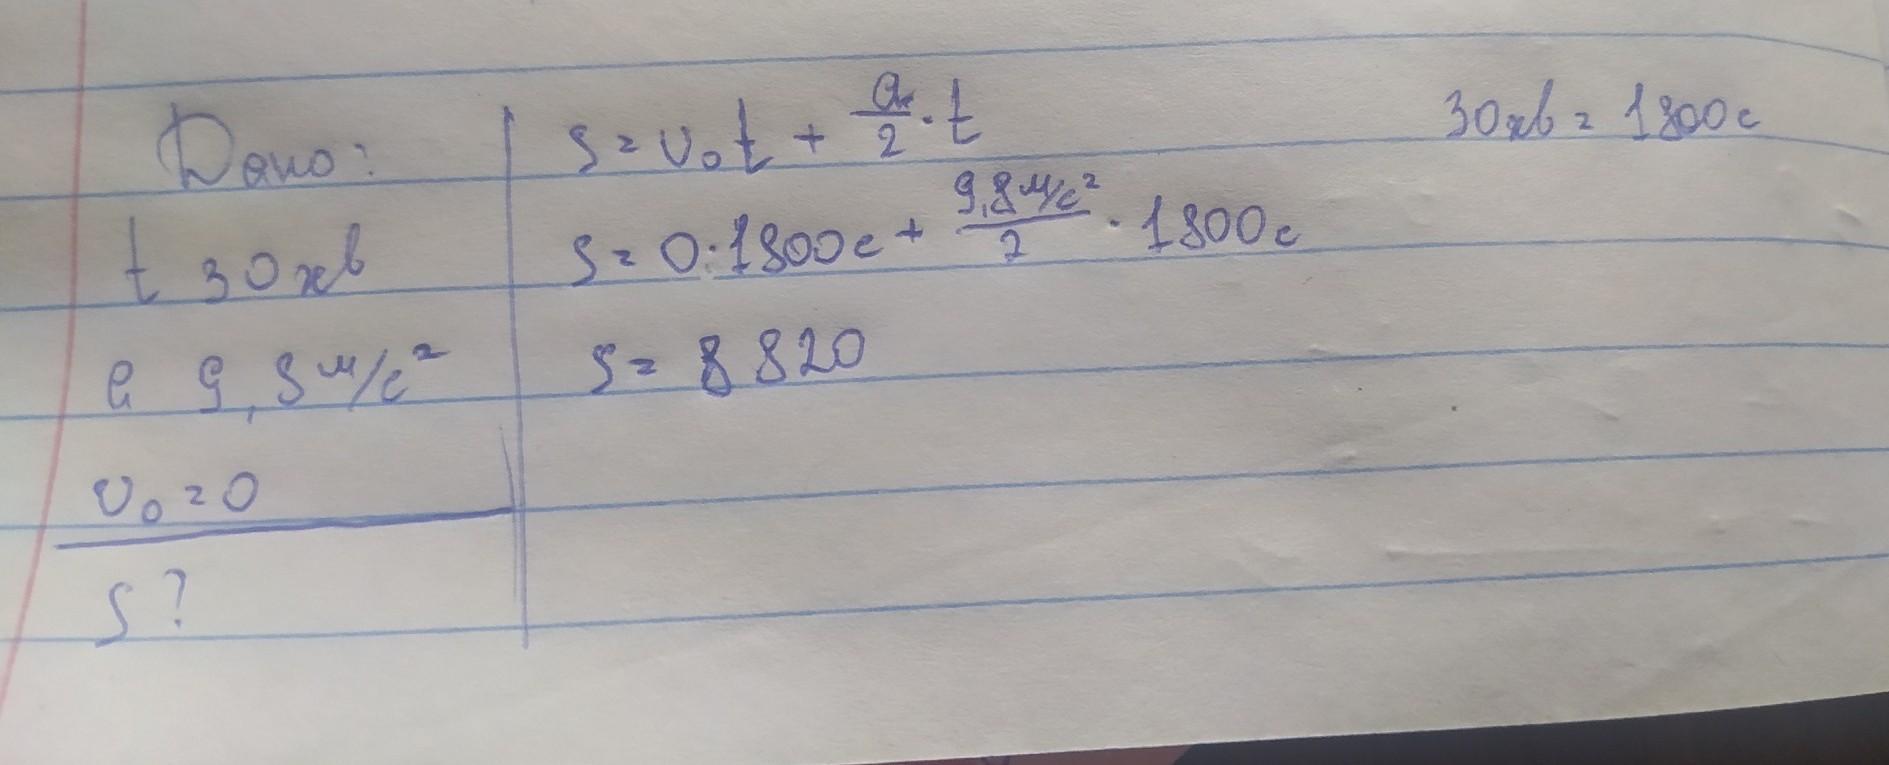 Дано:
t 30хв
a 9,8 м/с²
v₀ = 0
S ?
S = v₀t + a/2 · t
S = 0·1800с + 9,8 м/с²/2 · 1800с
S = 8 820
30хв = 1800с